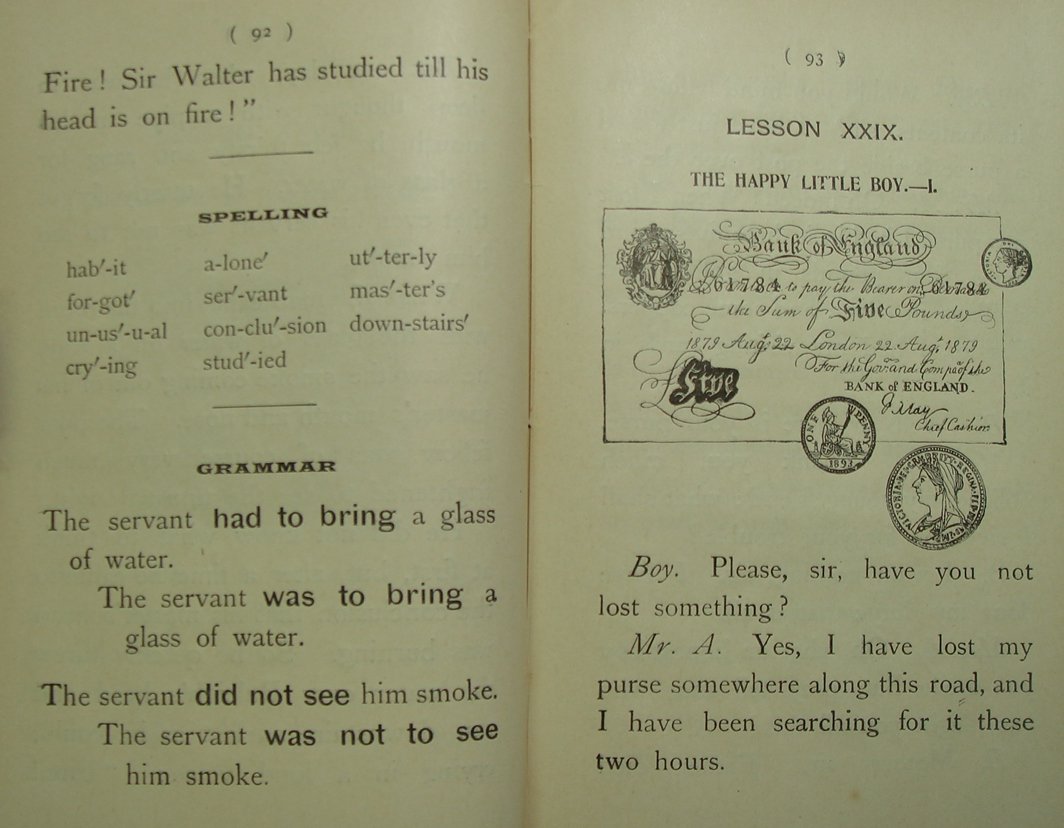 ( 92 )
Fire! Sir Walter has studied till his
head is on fire!"
SPELLING
hab′-it a-lone′ ut′-ter-ly
for-got′ ser′-vant mas′-ter's
un-us′-u-al con-clu′-sion down-stairs′
cry′-ing stud′-ied
GRAMMAR
The servant had to bring a glass
of water.
The servant was to bring a
glass of water.
The servant did not see him smoke.
The servant was not to see
him smoke.
( 93 )
LESSON XXIX.
THE HAPPY LITTLE BOY.—I.
Bank of England
61784 to pay the Bearer on 61784
the Sum of Five Pounds
1879 Aug. 22 London 22 Aug. 1879
For the Gov. and Comp. of the
BANK of ENGLAND.
Five
F. May
Chief Cashier.
ONE PENNY
1893
Boy. Please, sir, have you not
lost something?
Mr. A. Yes, I have lost my
purse somewhere along this road, and
I have been searching for it these
two hours.